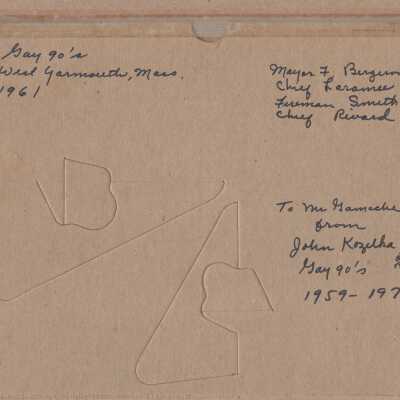 Gay 90's
West Yarmouth, Mass.
1961
Mayor F. Bergeron
Chief Laramee
Fireman Smith
Chief Rivard
To Mr Gamache
from
John Kozelka
Gay 90's
1959-197